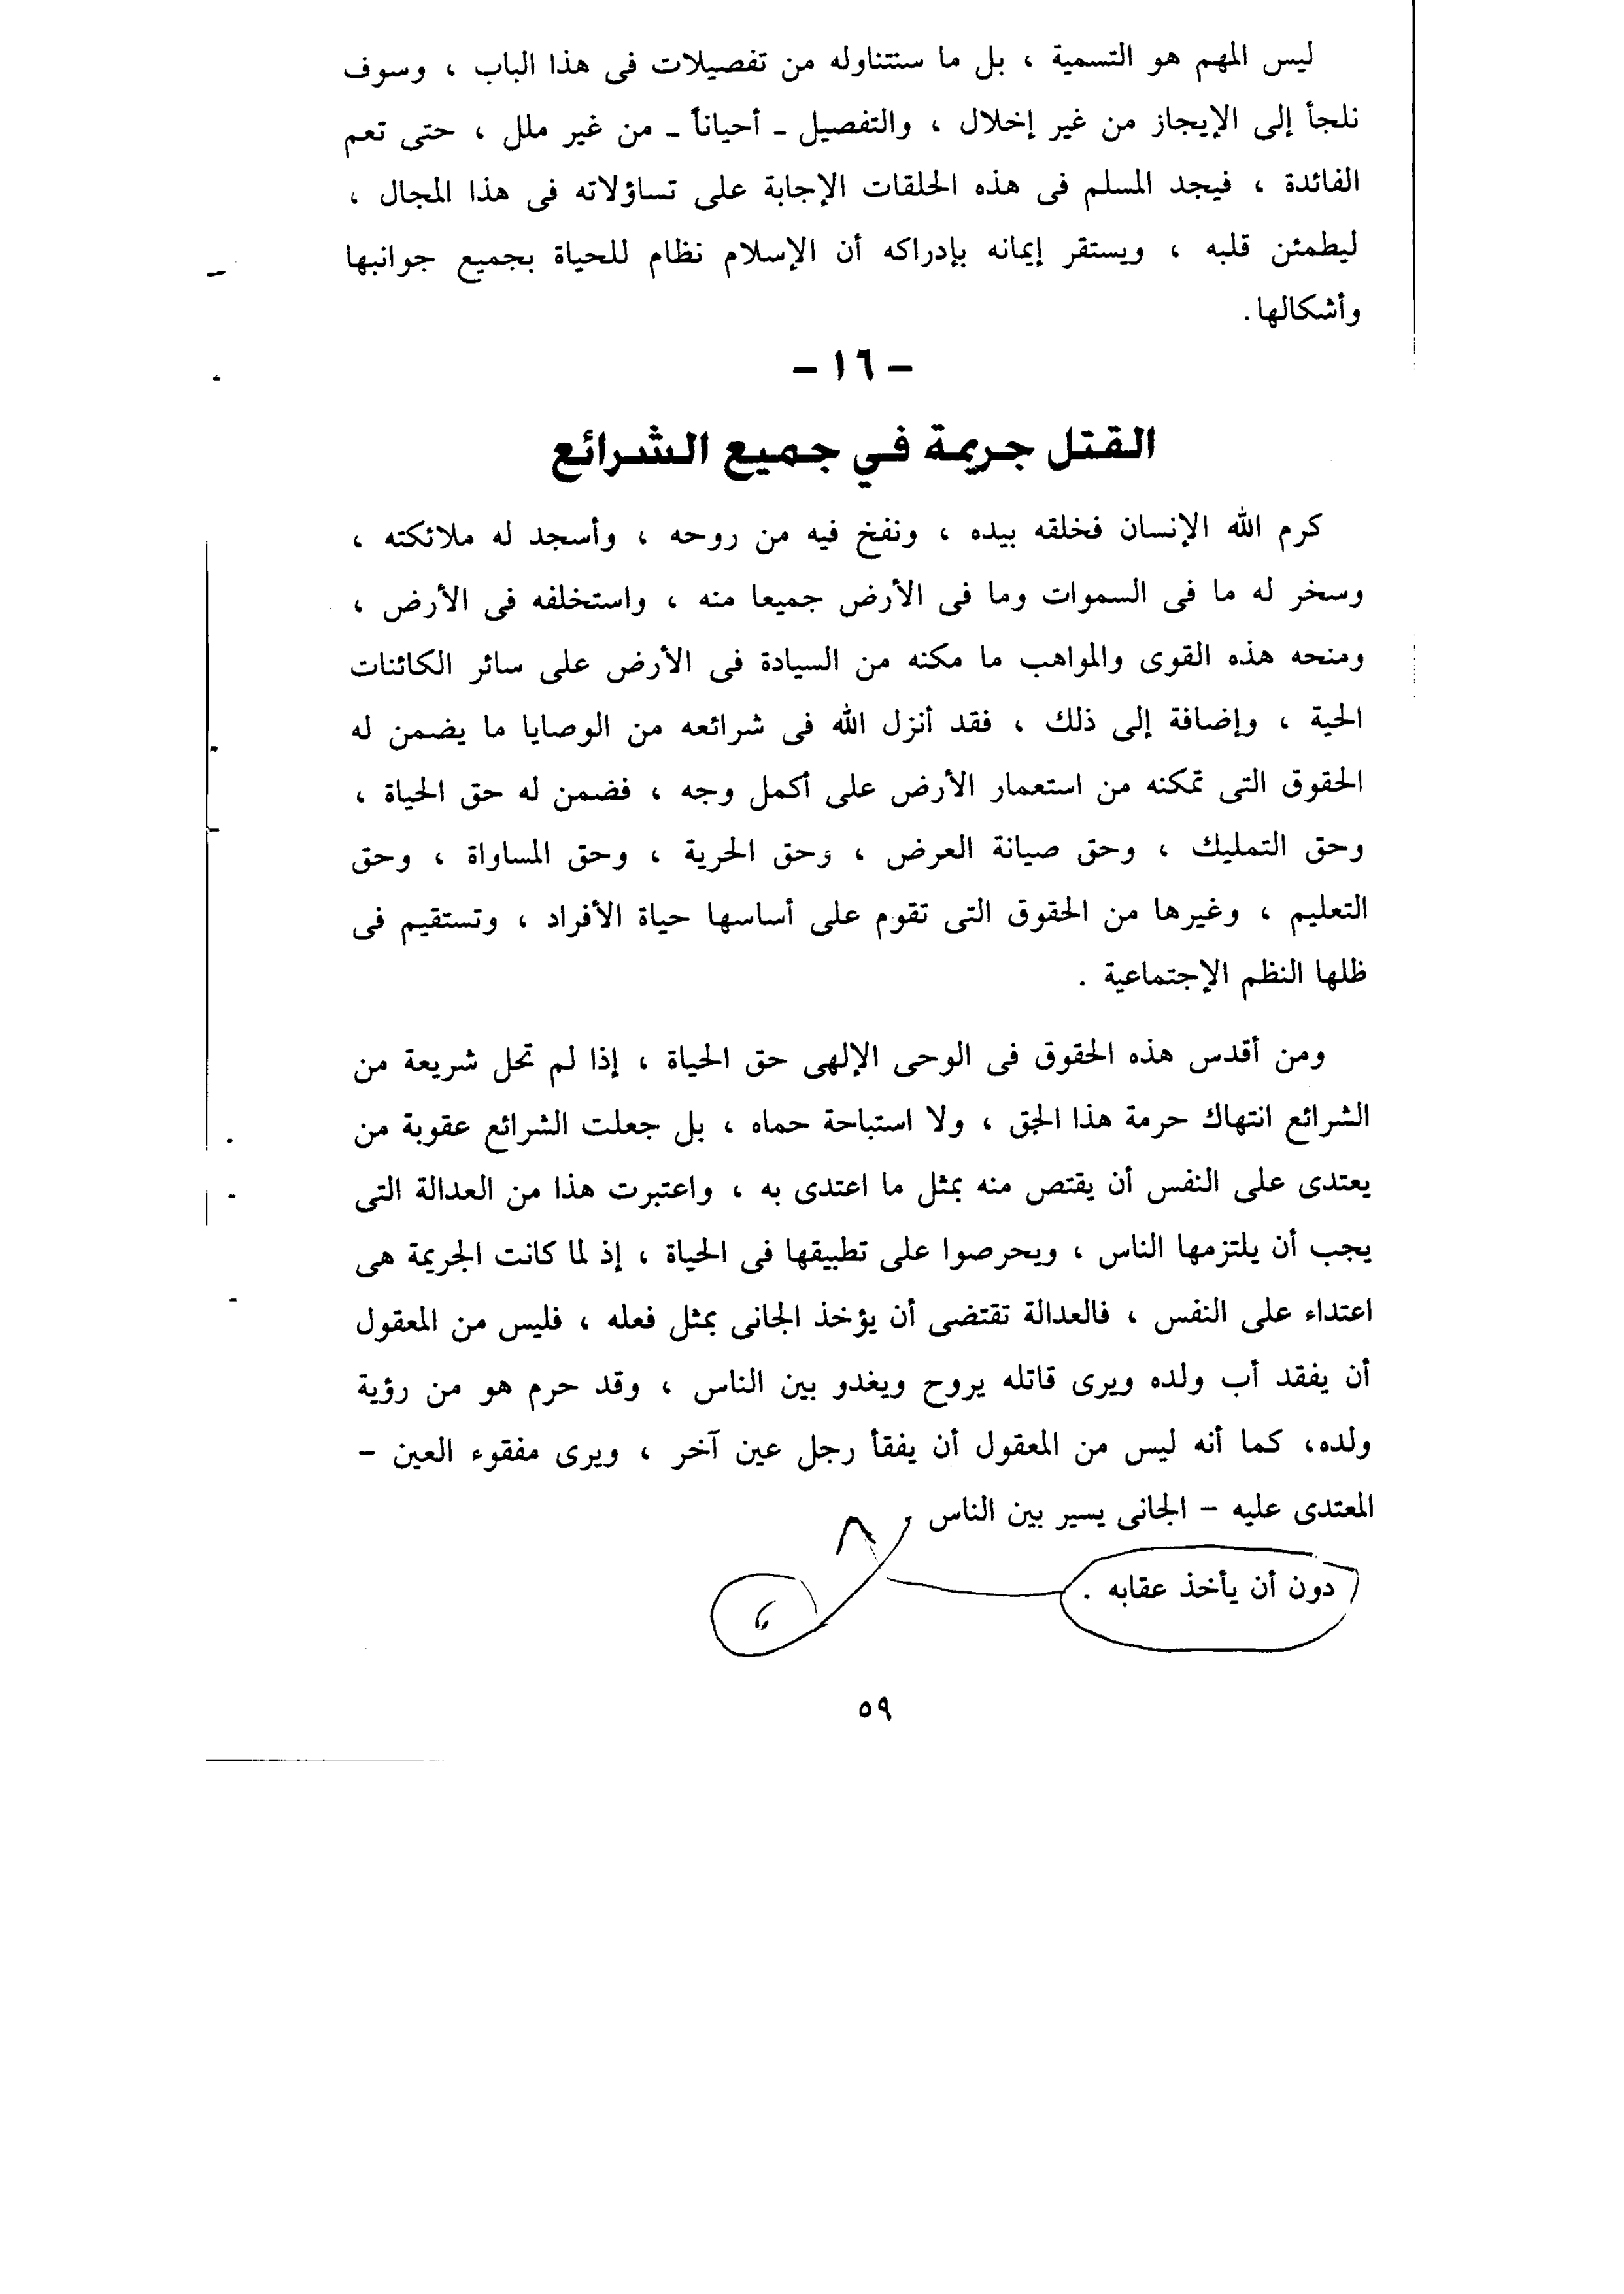 ليس المهم هو التسمية ، بل ما سنتناوله من تفصيلات فى هذا الباب ، وسوف
نلجأ إلى الإيجاز من غير إخلال ، والتفصيل ـ أحياناً ـ من غير ملل ، حتى تعم
الفائدة ، فيجد المسلم فى هذه الحلقات الإجابة على تساؤلاته فى هذا المجال ،
ليطمئن قلبه ، ويستقر إيمانه بإدراكه أن الإسلام نظام للحياة بجميع جوانبها
وأشكالها.
– ١٦ –
القتل جريمة في جميع الشرائع
كرم الله الإنسان فخلقه بيده ، ونفخ فيه من روحه ، وأسجد له ملائكته ،
وسخر له ما فى السموات وما فى الأرض جميعا منه ، واستخلفه فى الأرض ،
ومنحه هذه القوى والمواهب ما مكنه من السيادة فى الأرض على سائر الكائنات
الحية ، وإضافة إلى ذلك ، فقد أنزل الله فى شرائعه من الوصايا ما يضمن له
الحقوق التى تمكنه من استعمار الأرض على أكمل وجه ، فضمن له حق الحياة ،
وحق التمليك ، وحق صيانة العرض ، وحق الحرية ، وحق المساواة ، وحق
التعليم ، وغيرها من الحقوق التى تقوم على أساسها حياة الأفراد ، وتستقيم فى
ظلها النظم الإجتماعية .
ومن أقدس هذه الحقوق فى الوحى الإلهى حق الحياة ، إذا لم تحل شريعة من
الشرائع انتهاك حرمة هذا الحق ، ولا استباحة حماه ، بل جعلت الشرائع عقوبة من
يعتدى على النفس أن يقتص منه بمثل ما اعتدى به ، واعتبرت هذا من العدالة التى
يجب أن يلتزمها الناس ، ويحرصوا على تطبيقها فى الحياة ، إذ لما كانت الجريمة هى
اعتداء على النفس ، فالعدالة تقتضى أن يؤخذ الجانى بمثل فعله ، فليس من المعقول
أن يفقد أب ولده ويرى قاتله يروح ويغدو بين الناس ، وقد حرم هو من رؤية
ولده، كما أنه ليس من المعقول أن يفقأ رجل عين آخر ، ويرى مفقوء العين –
المعتدى عليه – الجانى يسير بين الناس ,
دون أن يأخذ عقابه .
،
٥٩